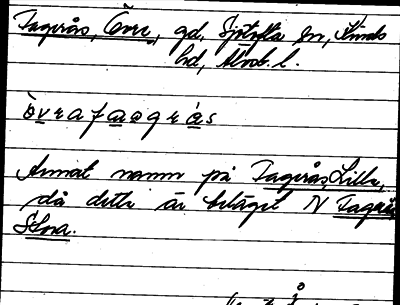 Fagerås, Övre, gd, Sjötofta sn, Kinds
hd, Älvsb. l.
òvrafaagrás
Annat namn på Fagerås, Lilla,
då detta är beläget N Fagerås
Stora.